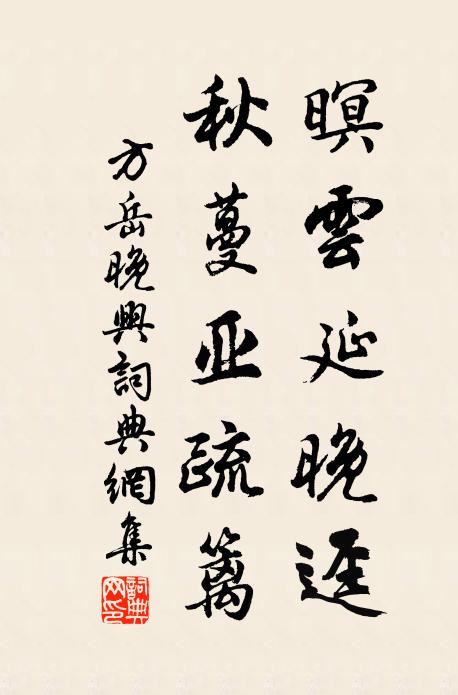 暝雲延晚逕
秋蔓亚疏篱
方岳晚興詞典網集
詞典网印